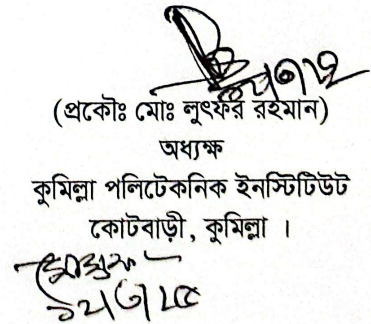 (প্রকৌঃ মোঃ লুৎফর রহমান)
অধ্যক্ষ
কুমিল্লা পলিটেকনিক ইনস্টিটিউট
কোটবাড়ী, কুমিল্লা ।